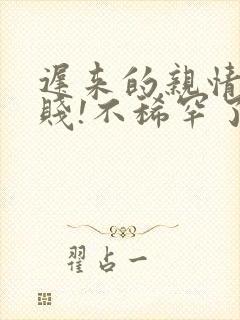 遲来的親情
賤!不稀罕了
翟占一